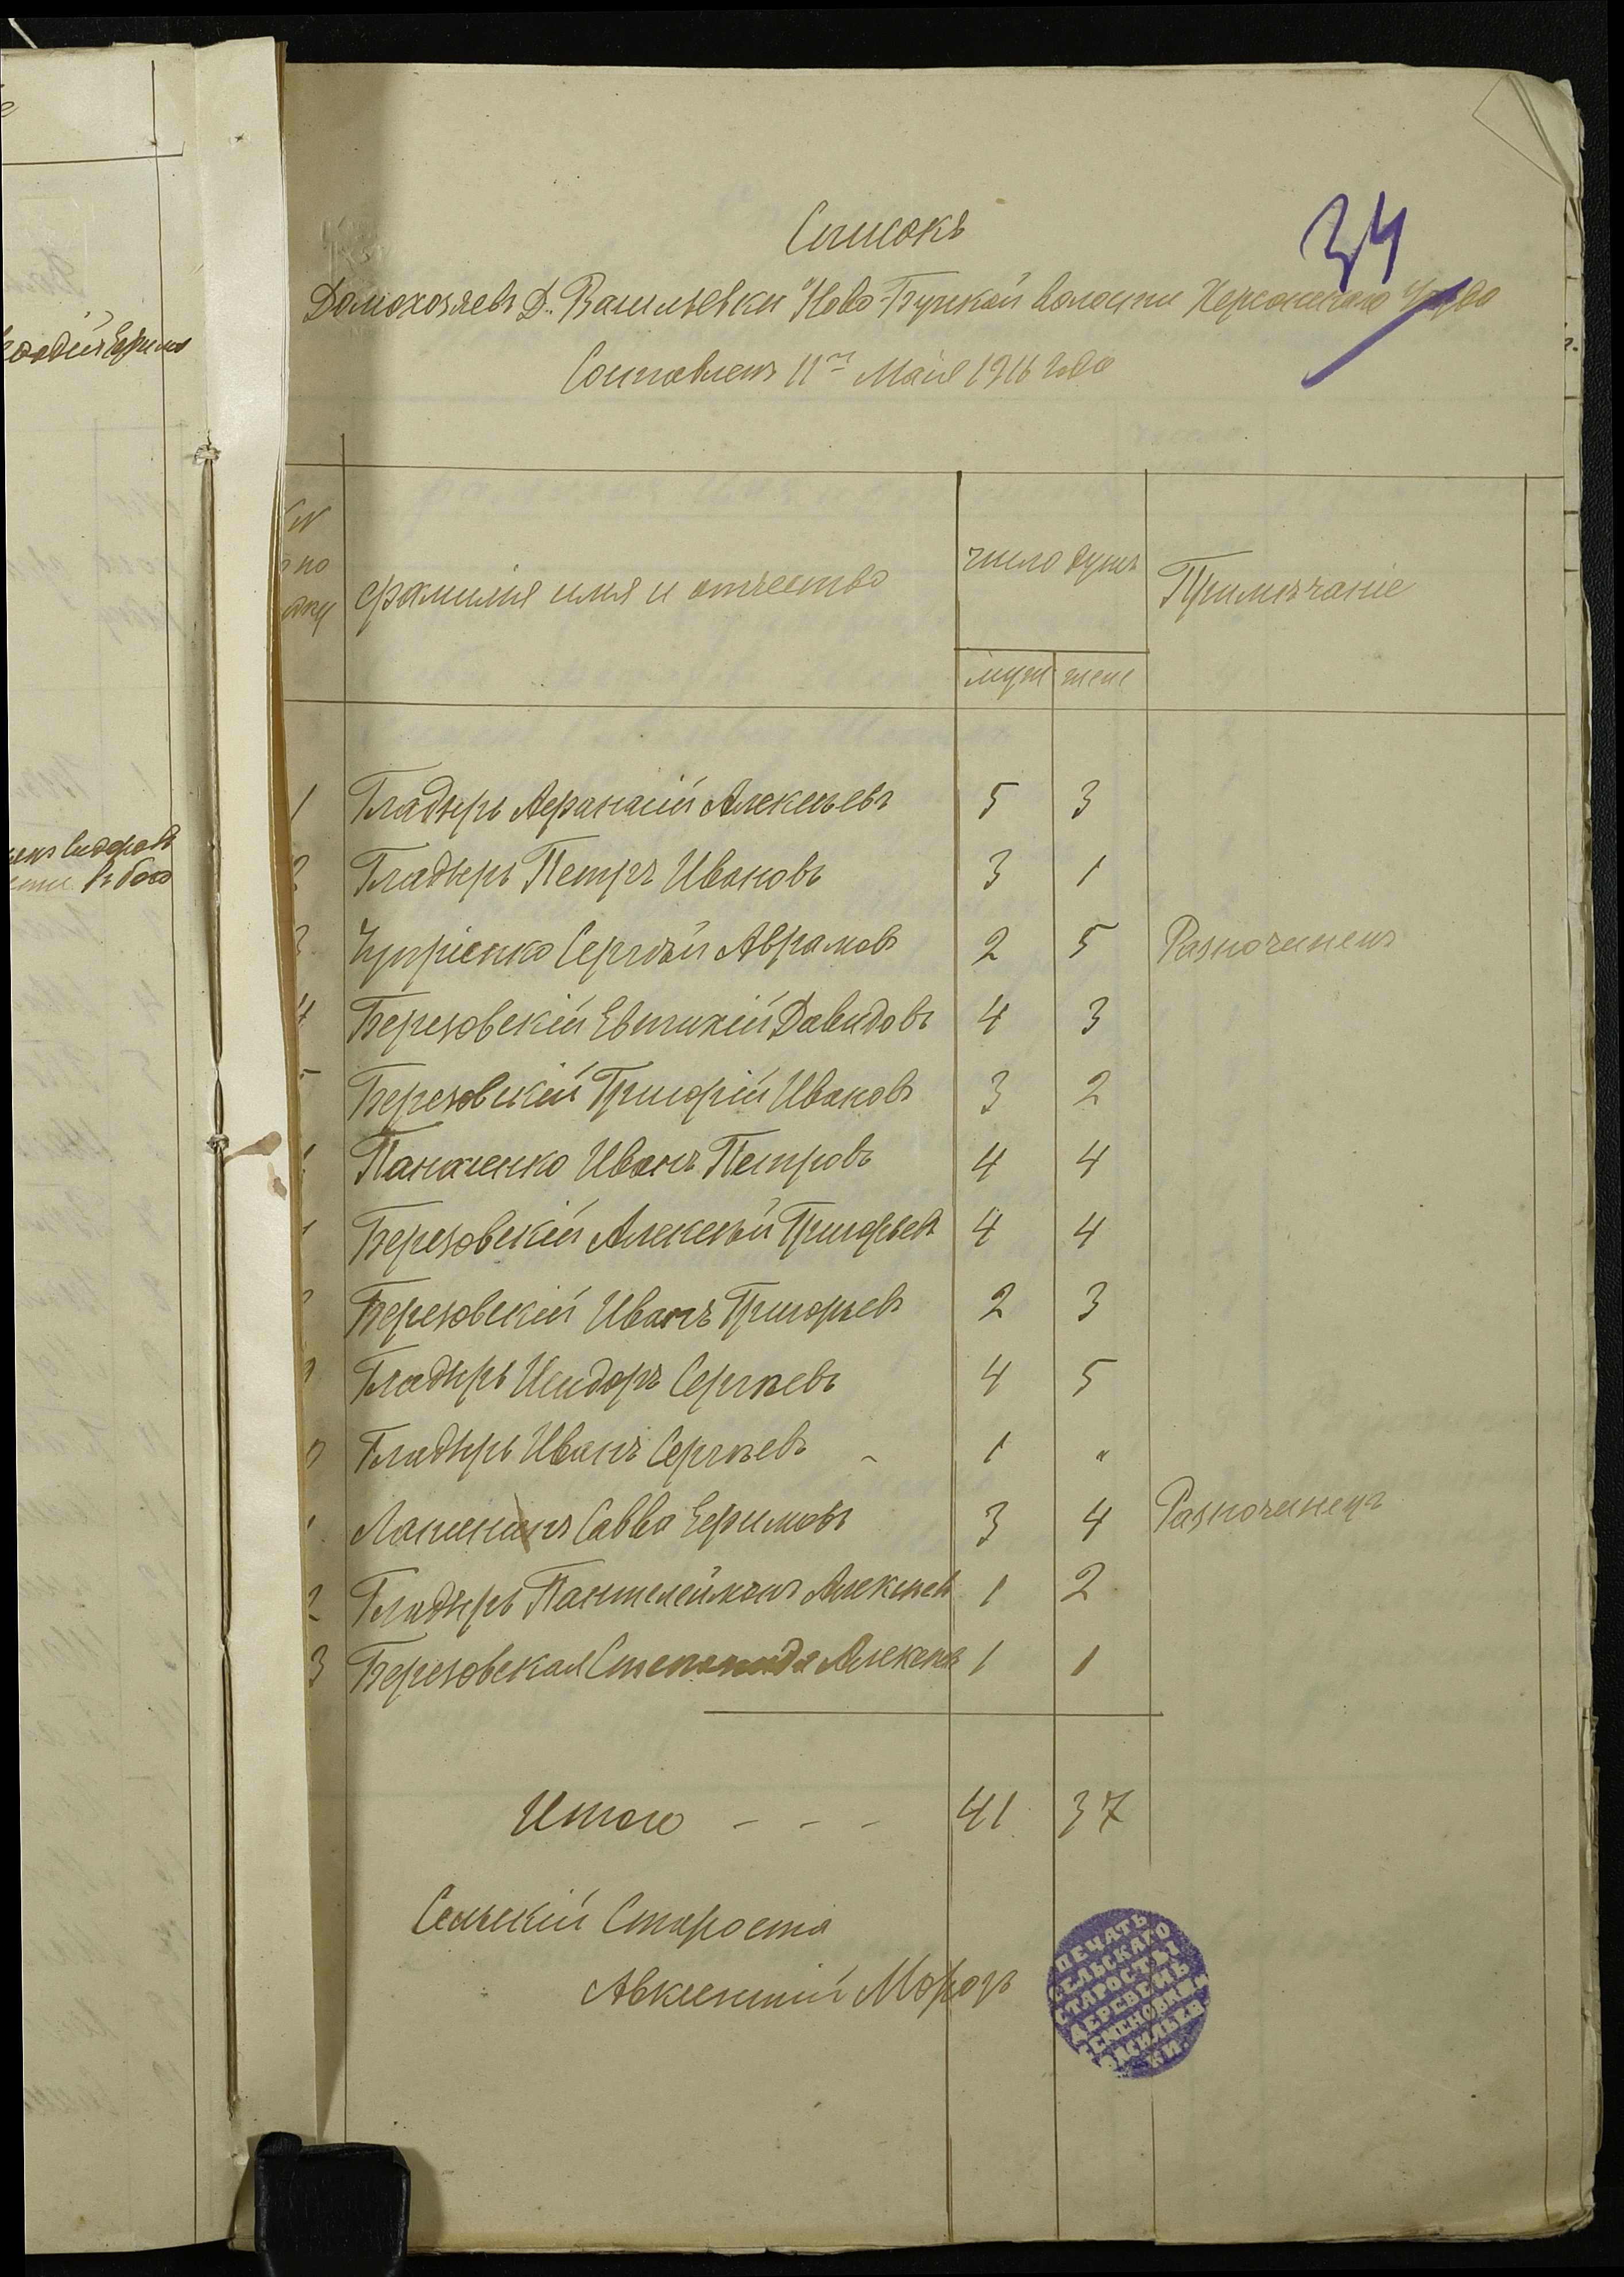 34
Списокъ
Домохозяевъ Д. Васильевки Ново-Бугской волости Херсонскаго уѣзда
Составленъ 11го Мая 1916 года
по
фамилія имя и отчество
число душъ
Примѣчаніе
муж жен
1 Гладырь Афанасій Алексѣевъ 5 3
2 Гладырь Петръ Ивановъ 3 1
3 Сергѣй Аврамовъ 2 5 Разночинецъ
4 Березовскій Евтихій Давидовъ 4 3
5 Березовскій Григорій Ивановъ 3 2
Паначенко Иванъ Петровъ 4 4
Березовскій Алексѣй Григорьевъ 4 4
Березовскій Иванъ Григорьевъ 2 3
Гладырь Исидоръ Сергѣевъ 4 5
0 Гладырь Иванъ Сергѣевъ - 1 "
Савва Ефимовъ 3 4 Разночинецъ
2 Гладырь Пантелеймонъ Алексѣев 1 2
3 Березовская Степанида Алексѣев 1 1
Итого - - - 41 37
Сельскій Староста
Авксентій Морозъ
ПЕЧАТЬ
СЕЛЬСКАГО
СТАРОСТЫ
ДЕРЕВЕНЬ
СЕМЕНОВКИ
ВАСИЛЬЕВ
КИ.